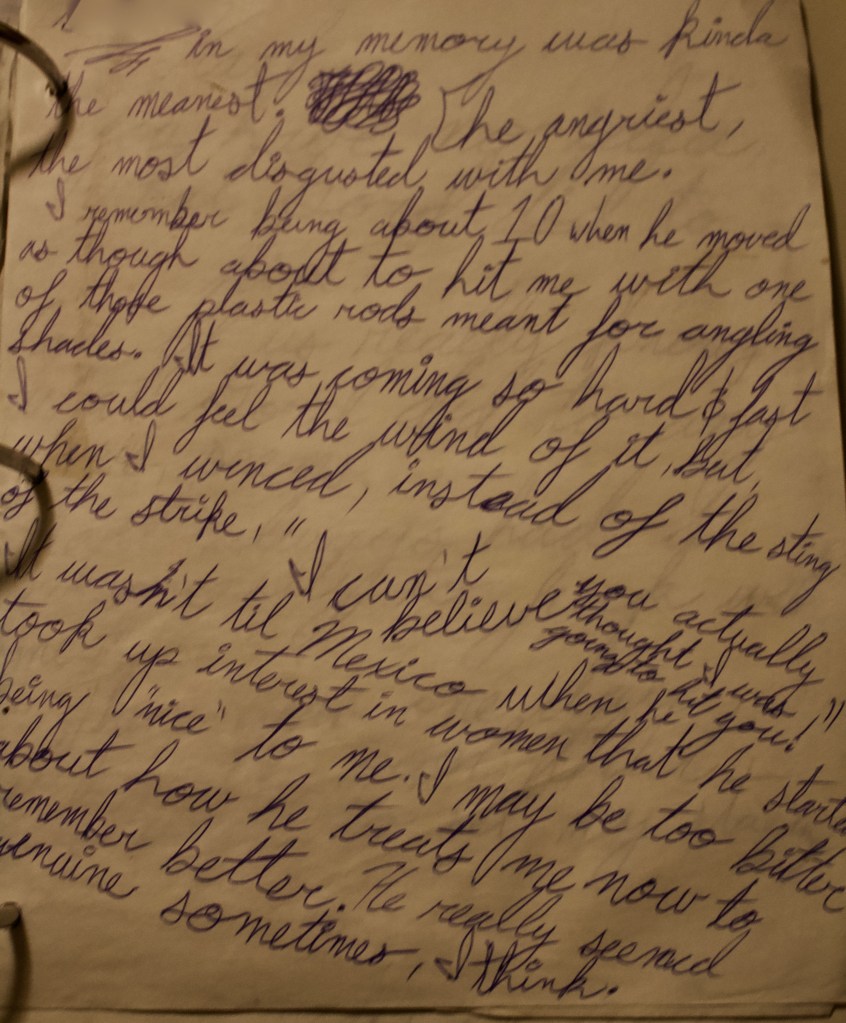 in my memory was kinda
the meanest. The angriest,
the most disgusted with me.
I remember being about 10 when he moved
as though about to hit me with one
of those plastic rods meant for angling
shades. It was coming so hard & fast
I could feel the wind of it, but,
when I winced, instead of the sting
of the strike, " I can't believe you actually
thought I was
going to hit you!"
It wasn't til Mexico when he
took up interest in women that he started
being "nice" to me. I may be too bitter
about how he treats me now to
remember better. He really seemed
genuine sometimes, I think.